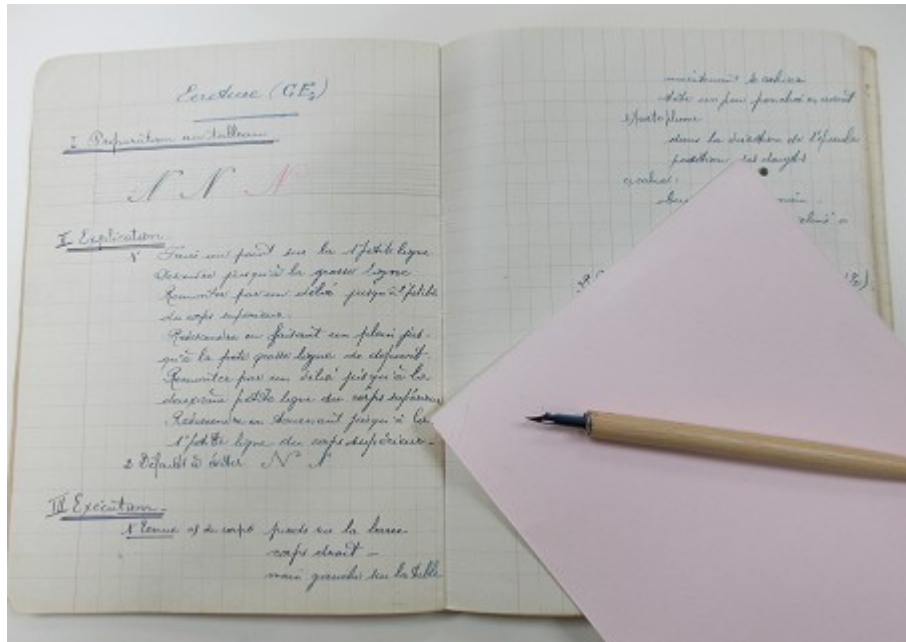 Ecriture (CE2)
I Préparation au tableau
N N N
II Explication
1° Faire un point sur la 1e petite ligne
Descendre jusqu'à la grosse ligne
Remonter par un délié jusqu'à l'petite
du corps supérieur.
Redescendre en faisant un plein jus-
qu'à la grosse ligne de
Remonter par un délié jusqu'à la
deuxième petite ligne du corps supérieur
Redescendre en tournant jusqu'à la
1e petite ligne du corps supérieur.
2 Défauts à éviter N N
III Exécution
1° Tenue a) du corps pieds sur la barre
corps droit -
main gauche sur la table
maintenant le cahier
tête un peu penchée en avant
b) porte plume
dans la direction de l'épaule
position des doigts
c) cahier :